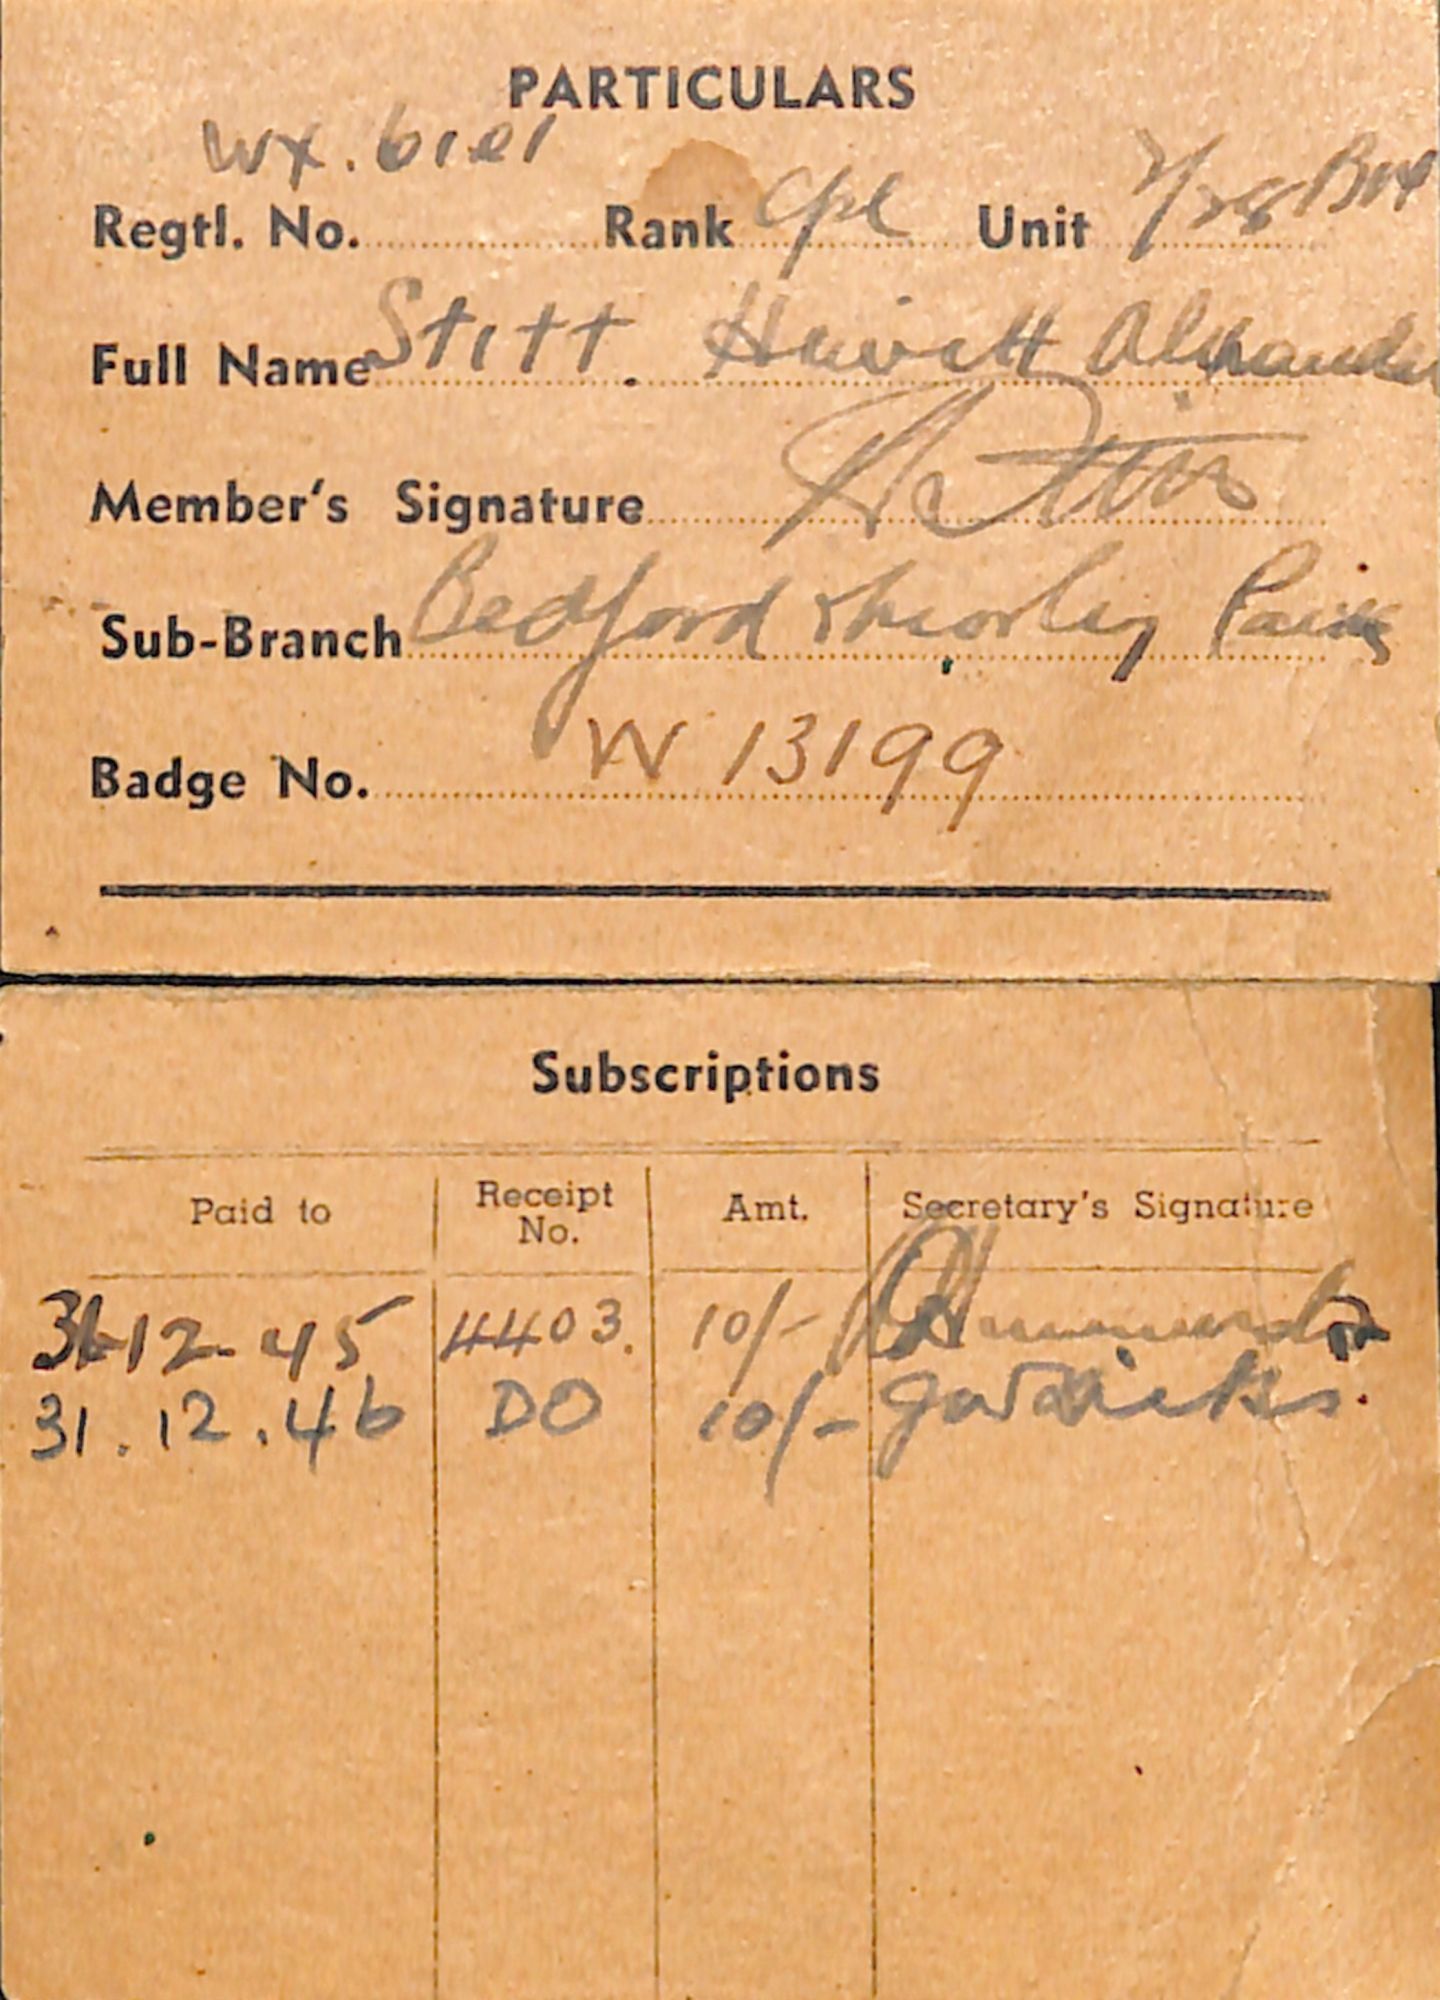 PARTICULARS
WX.6101
Regtl. No. Rank Cpl Unit 2/28 Btn
Full Name Stitt. Hewett Alexander
Member's Signature
Sub-Branch Bedford Morley Park
Badge No. W 13199
Subscriptions
Paid to Receipt No. Amt. Secretary's Signature
31-12-45 4403. 10/-
31.12.46 DO 10/-